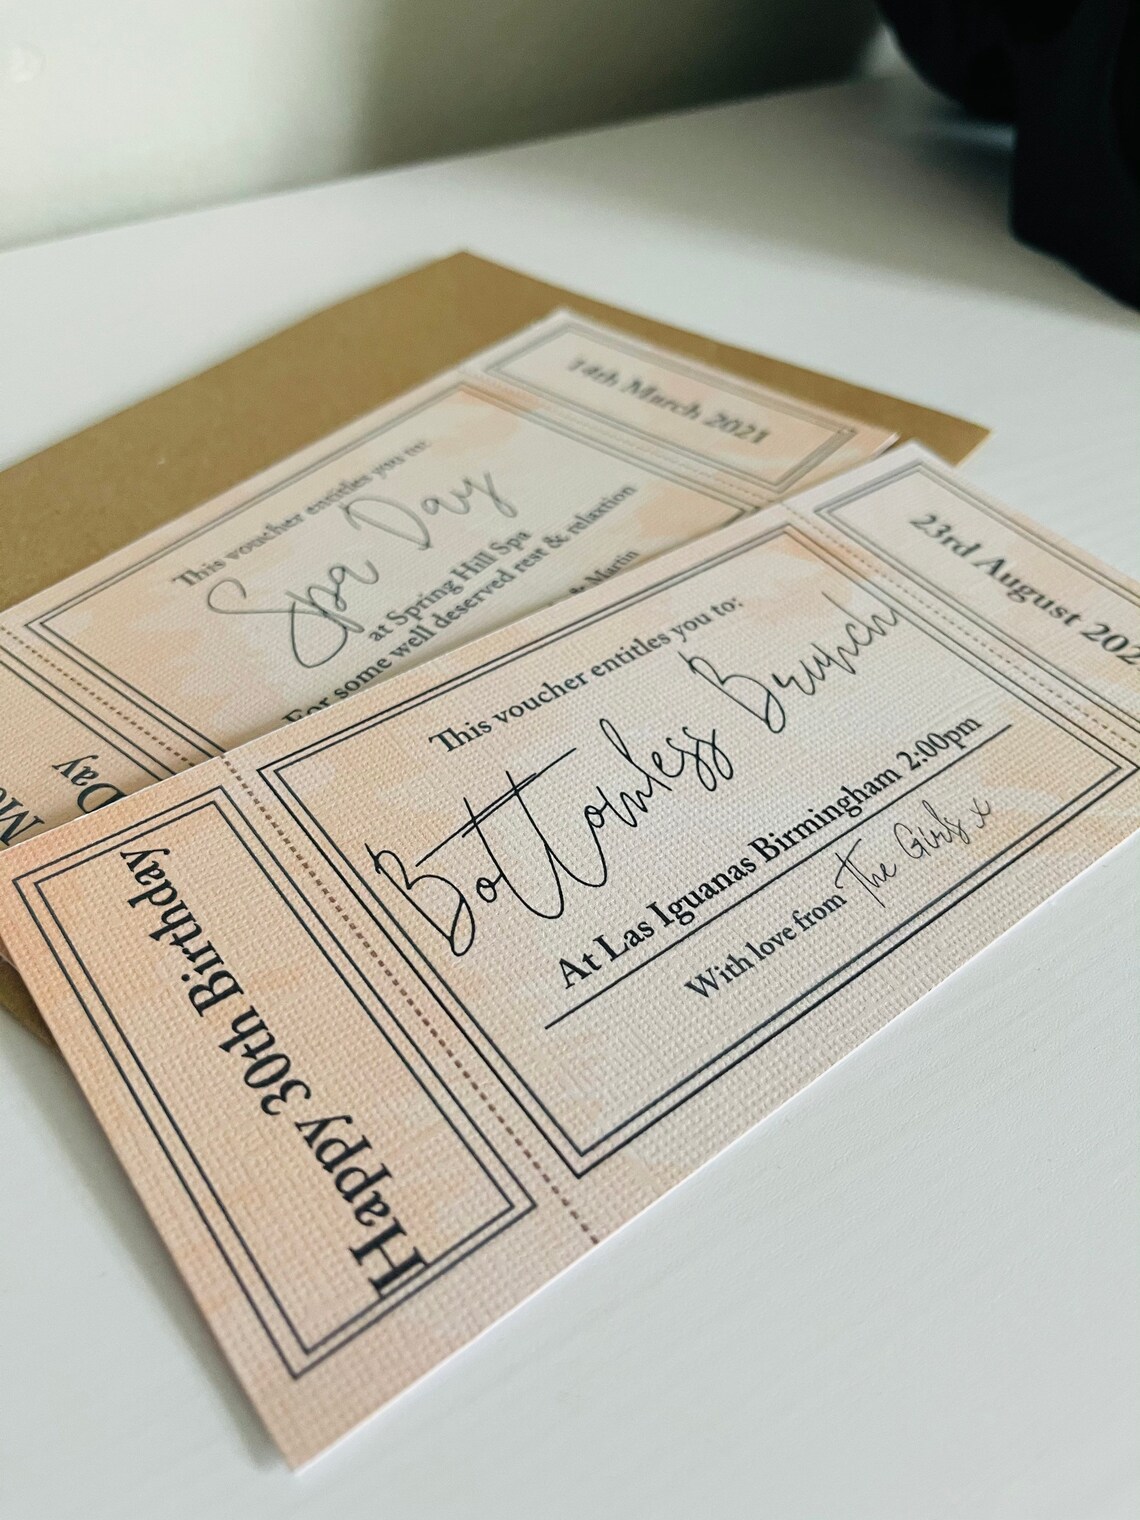 14th March 2021
This voucher entitles you to:
Spa Day
at Spring Hill Spa
For some well deserved rest & relaxtion
& Martin
Day
23rd August 202
This voucher entitles you to:
Bottomless Brunch
At Las Iguanas Birmingham 2:00pm
With love from The Girls x
Happy 30th Birthday